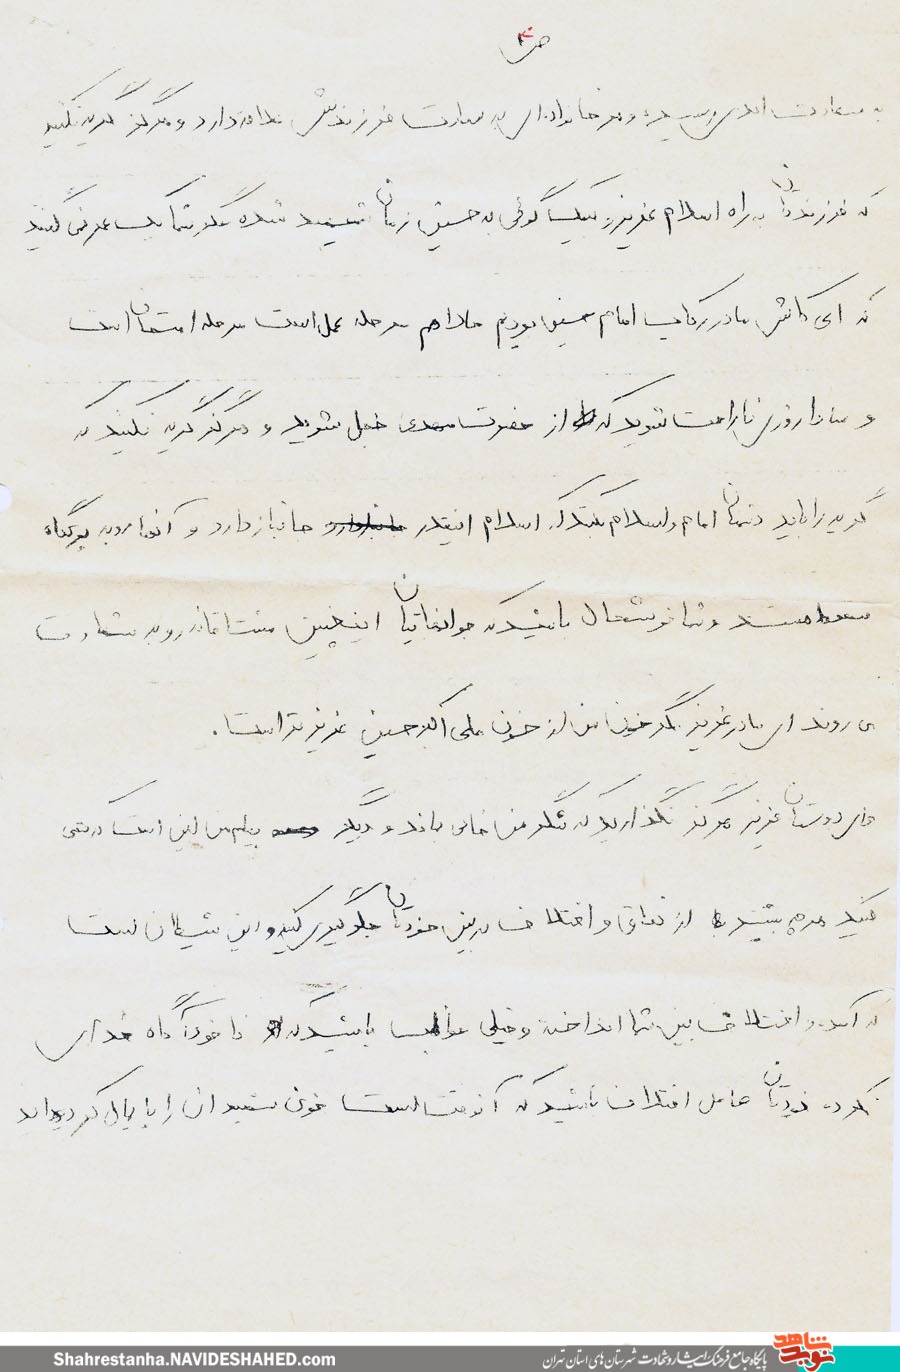 ص ۳
به سعادت ابدی رسیده و هر خانواده‌ای به سعادت فرزندش علاقه دارد و هرگز گریه نکنید
که فرزندتان به راه اسلام عزیز و لبیک گوئی به حسین زمان شهید شده مگر شما یک عمر نمی‌گفتید
که ای کاش ما در رکاب امام حسین بودیم حالا هم مرحله عمل است مرحله امتحان است
و مبادا روزی ناراحت شوید که از حضرت مهدی خجل شوید و هرگز گریه نکنید که
گریه را باید دشمنان امام و اسلام بکند که اسلام اینقدر جانباز دارد و آنها رو به پرتگاه
سقوط هستند و شما خوشحال باشید که جوانهایتان اینچنین مشتاقانه رو به شهادت
می‌روند ای مادر عزیز مگر خون من از خون علی اکبر حسین عزیزتر است.
و ای دوستان عزیز هرگز نگذارید که سنگر من خالی بماند و دیگر پیام من این است که سعی
کنید مردم از نفاق و اختلاف در بین خودتان جلوگیری کنید و این شیطان است
که آمده و اختلاف بین شما انداخته و خیلی مواظب باشید که ناخودآگاه خدای
نکرده خودتان عامل اختلاف باشید که آنوقت است خون شهیدان را پایمال کرده‌اید
Shahrestanha.NAVIDESHAHED.com
پایگاه جامع فرهنگ ایثار و شهادت شهرستان‌های استان تهران
نوید شاهد